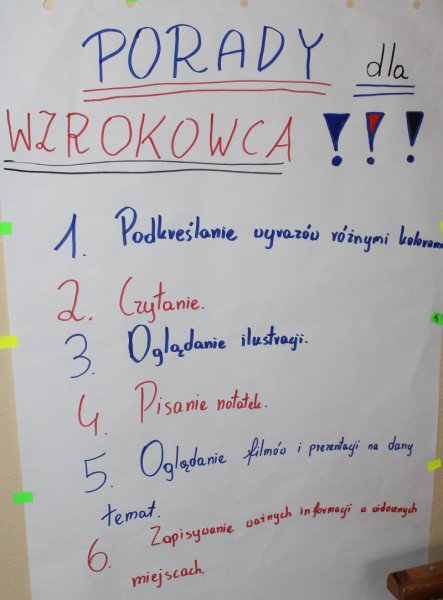 PORADY dla
WZROKOWCA !!!
1. Podkreślanie wyrazów różnymi kolorami
2. Czytanie.
3. Oglądanie ilustracji.
4. Pisanie notatek.
5. Oglądanie filmów i prezentacji na dany
temat.
6. Zapisywanie ważnych informacji w widocznych
miejscach.